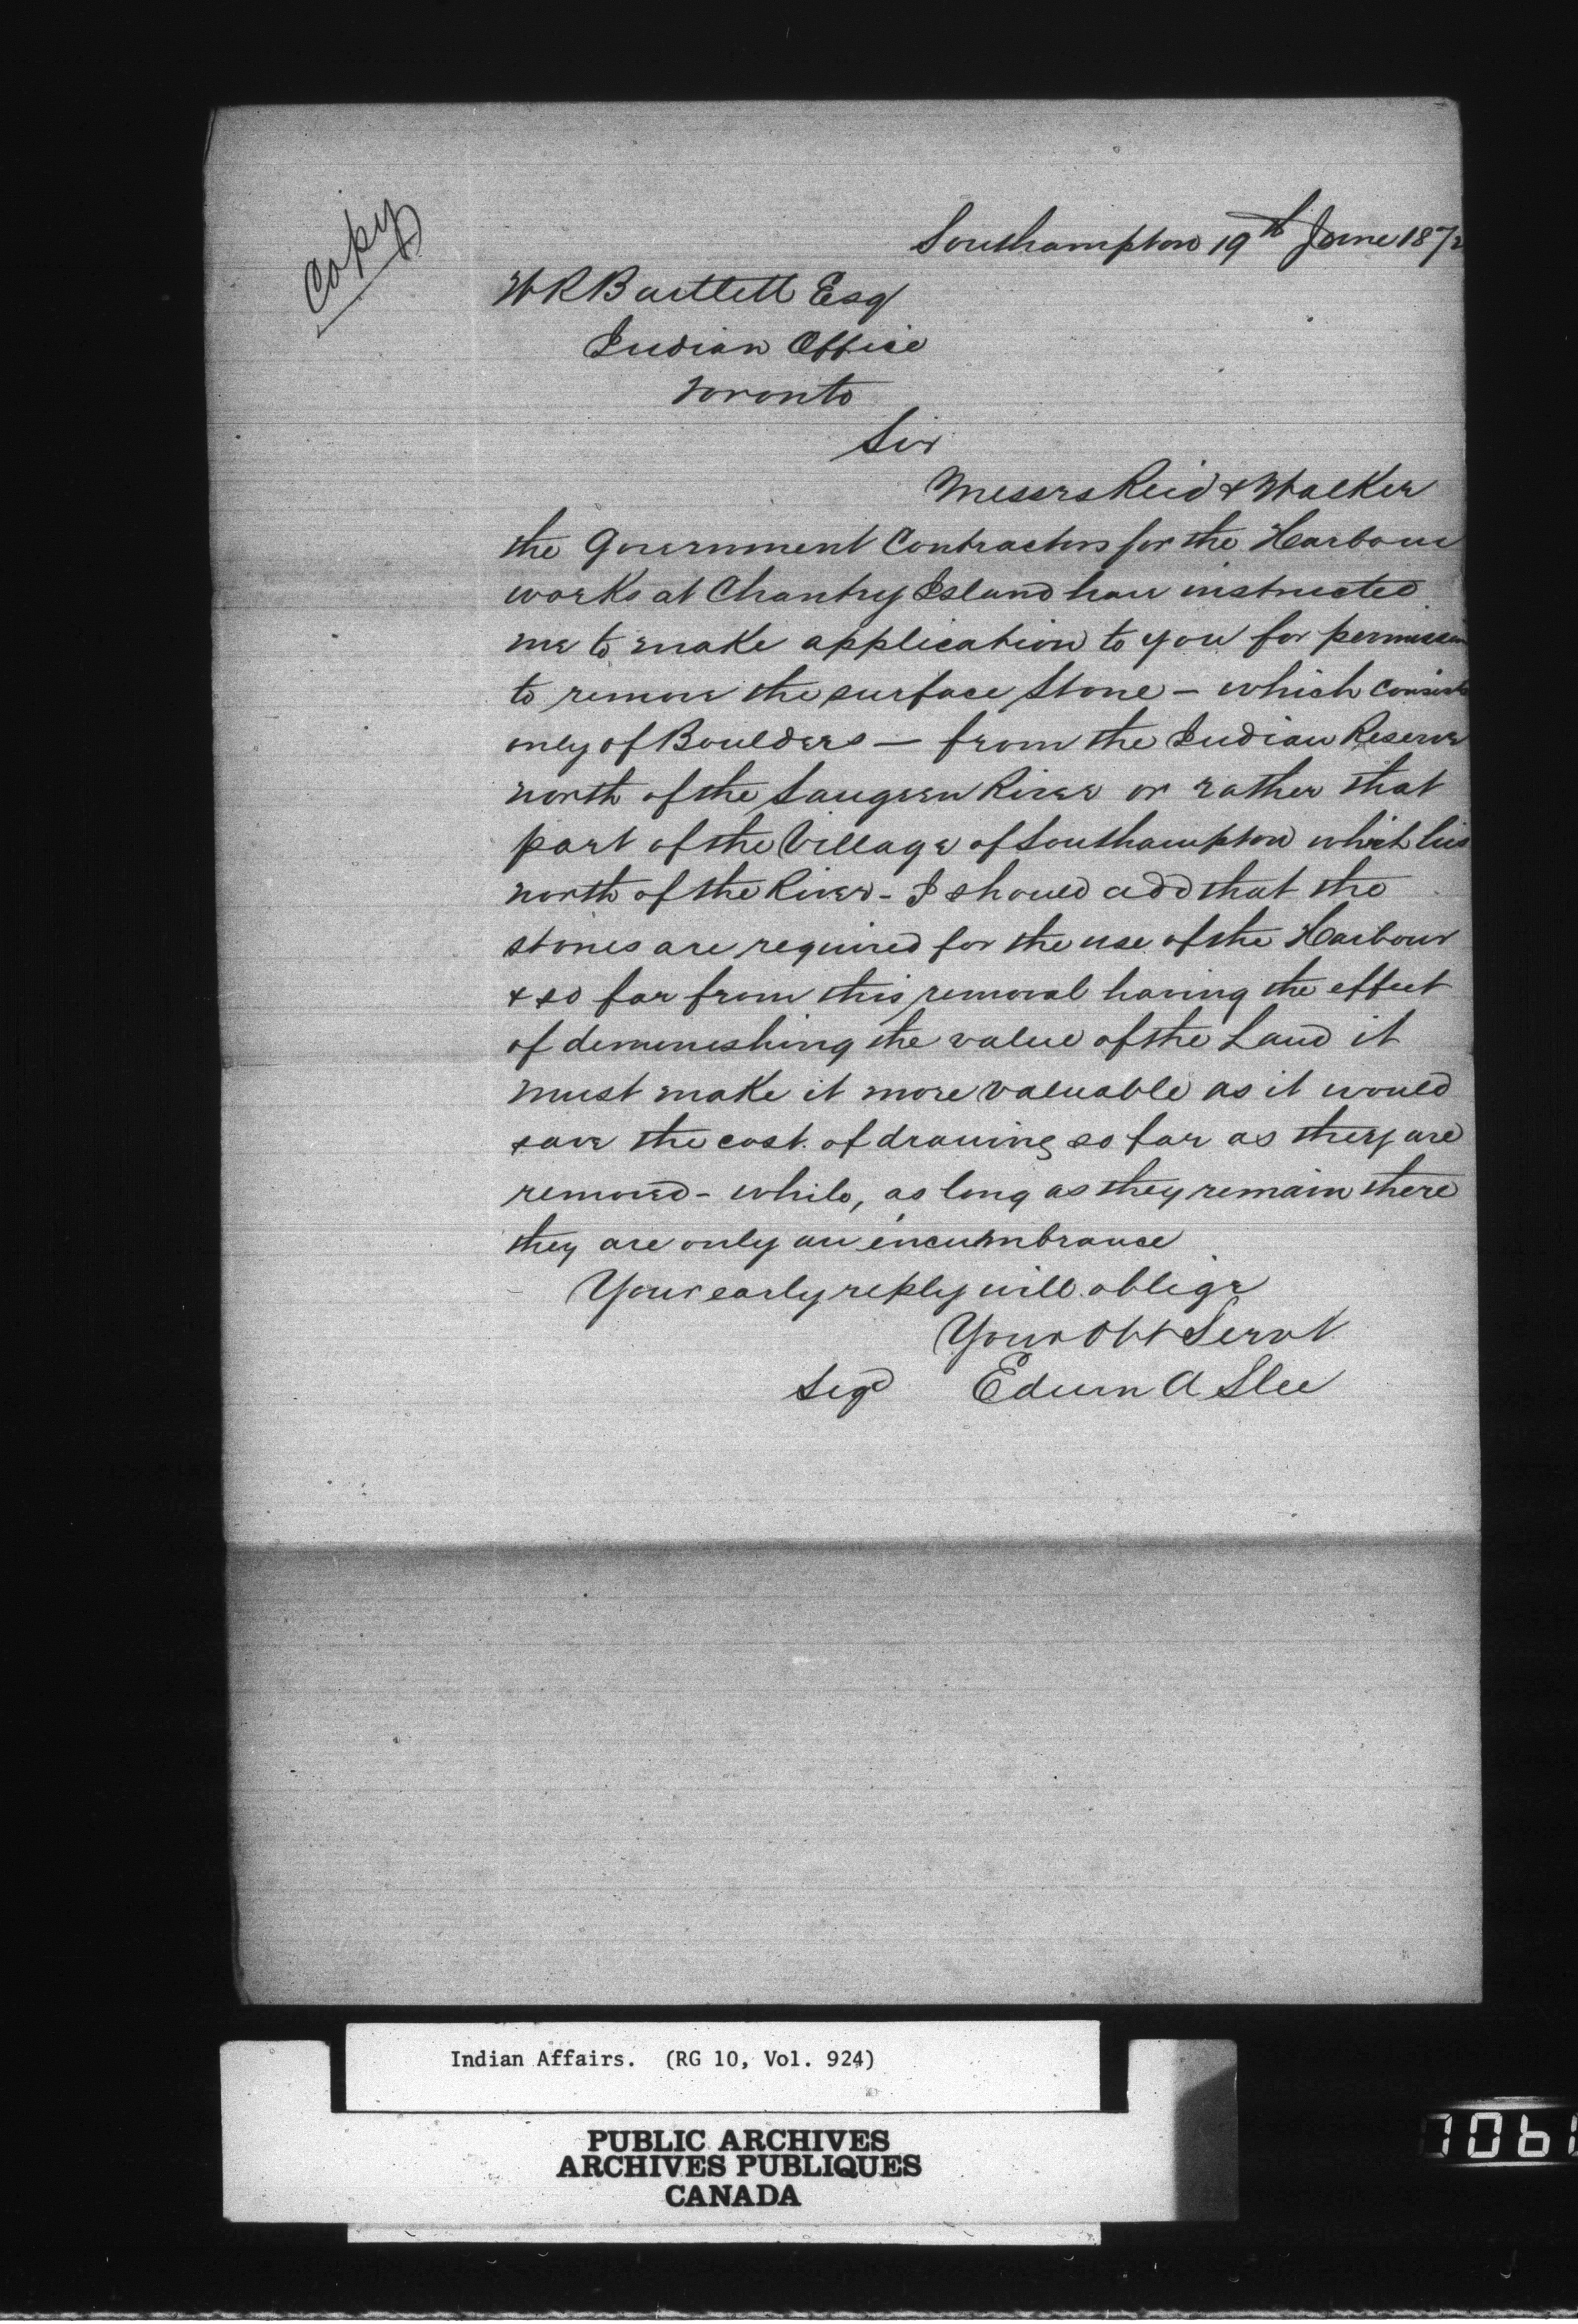 Copy
Southampton 19th June 1872
W R Bartlett Esq
Indian Office
Toronto
Sir
Messrs Reid & Walker
the Government Contractors for the Harbour
works at Chantry Island have instructed
me to make application to you for permission
to remove the surface Stone — which consists
only of Boulders — from the Indian Reserve
north of the Saugeen River or rather that
part of the Village of Southampton which lies
north of the River - I should add that the
stones are required for the use of the Harbour
& so far from this removal having the effect
of diminishing the value of the Land it
must make it more valuable as it would
save the cost of drawing so far as they are
removed - while, as long as they remain there
they are only an encumbrance
Your early reply will oblige
Your Obt Servt
Sigd Edwin A Slee
Indian Affairs. (RG 10, Vol. 924)
PUBLIC ARCHIVES
ARCHIVES PUBLIQUES
CANADA